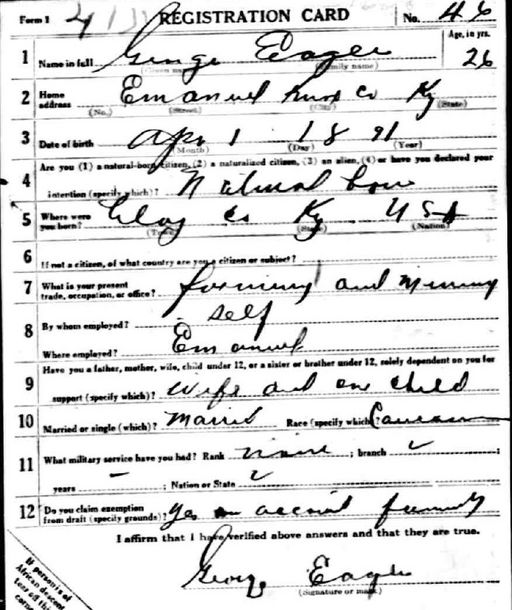 Form 1 REGISTRATION CARD No. 46
Age, in yrs.
1 Name in full George Eagle 26
(Given name) (Family name)
2 Home address Emanuel Knox Co Ky
(No.) (Street) (City) (State)
3 Date of birth Apr 1 1891
(Month) (Day) (Year)
Are you (1) a natural-born citizen, (2) a naturalized citizen, (3) an alien, (4) or have you declared your
4 intention (specify which)? Natural born
5 Where were you born? Clay Co Ky USA
(Town) (State) (Nation)
6 If not a citizen, of what country are you a citizen or subject?
7 What is your present trade, occupation, or office? farming and mining
8 By whom employed? self
Where employed? Emanuel
Have you a father, mother, wife, child under 12, or a sister or brother under 12, solely dependent on you for
9 support (specify which)? wife and one child
10 Married or single (which)? Married Race (specify which)? Caucasian
11 What military service have you had? Rank none ; branch
years – ; Nation or State
12 Do you claim exemption from draft (specify grounds)? Yes on account family
I affirm that I have verified above answers and that they are true.
George Eagle
(Signature or mark)
If person is of
African descent
tear off this
corner